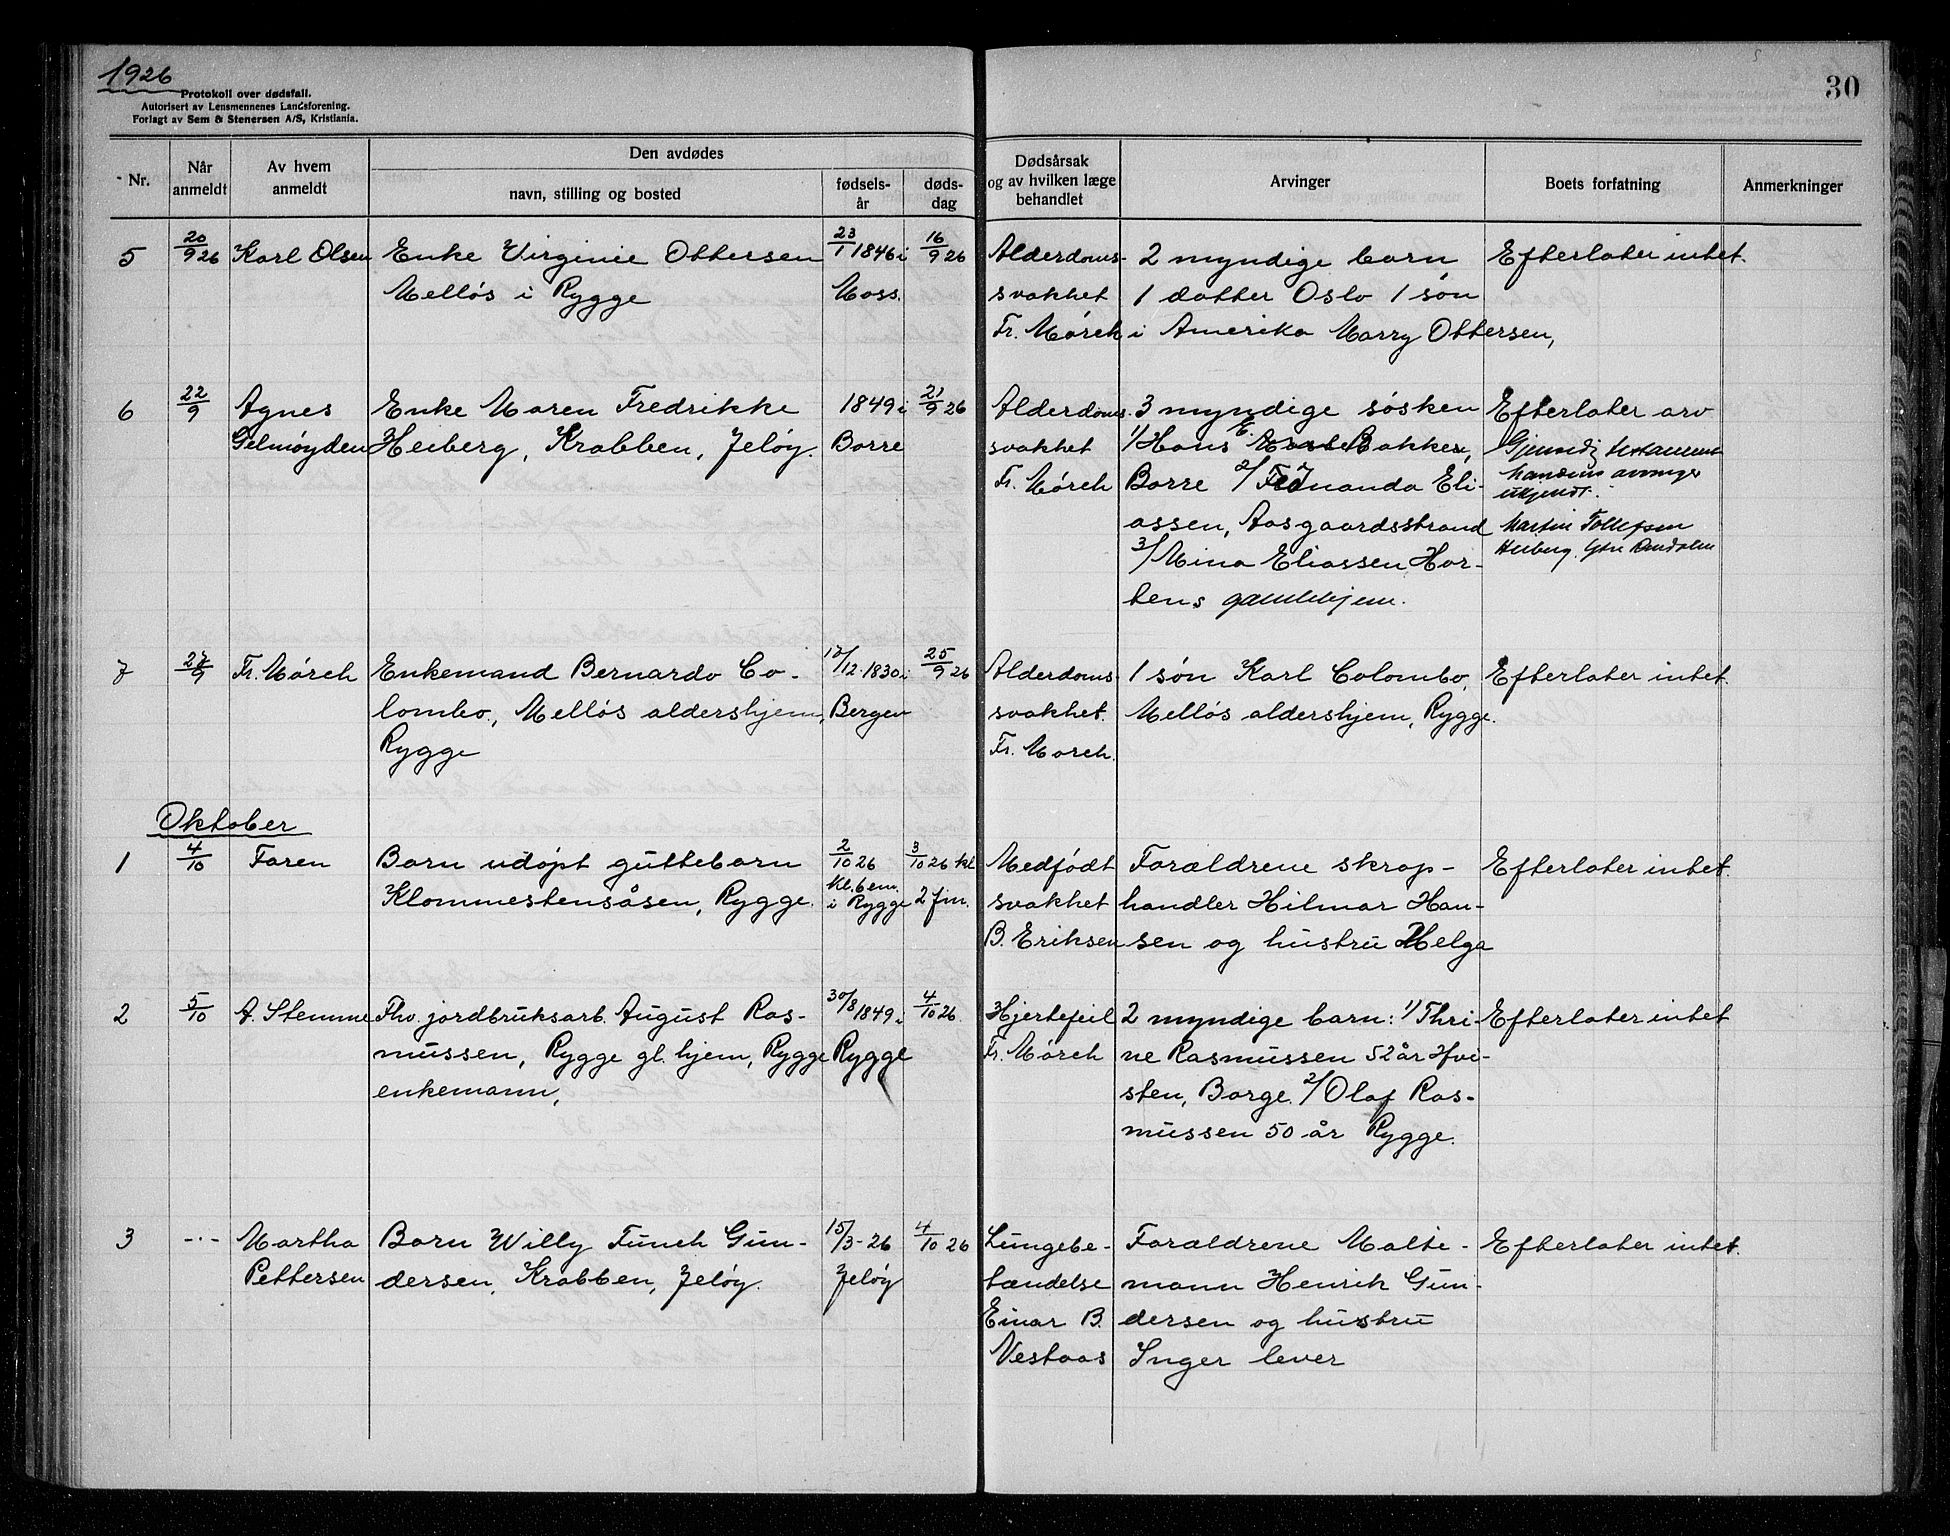 1926
Protokoll over dødsfall.
Autorisert av Lensmennenes Landsforening.
Forlagt av Sem & Stenersen A/S, Kristiania.
30
Nr.
Når anmeldt
Av hvem anmeldt
Den avdødes
navn, stilling og bosted
fødsels-år
døds-dag
Dødsårsak og av hvilken læge behandlet
Arvinger
Boets forfatning
Anmerkninger
5
20/9 26
Karl Olsen
Enke Virginie Ottersen
Melløs i Rygge
23/1 1846 i
Moss.
16/9 26
Alderdoms-
svakhet
Fr. Mørch
2 myndige barn
1 datter Oslo 1 søn
i Amerika Marry Ottersen,
Efterlater intet.
6
22/9
Agnes
Gelmøyden
Enke Maren Fredrikke
Heiberg, Krabben, Jeløy.
1849 i
Borre
21/9 26
Alderdoms-
svakhet
Fr. Mørch
3 myndige søsken
1/ Hans E. Bakken,
Borre 2/ Fernanda Eli-
assen, Aasgaardsstrand
3/ Mina Eliassen Hor-
tens gamlehjem.
Efterlater arv
Gjensidig
mandens arvinger
ukjendt.
Martin Tollefsen
Heiberg,
7
27/9
Fr. Mørch
Enkemand Bernardo Co-
lombo, Melløs aldershjem,
Rygge
12/12-1830 i
Bergen
25/9 26
Alderdoms
svakhet.
Fr. Mørch.
1 søn Karl Colombo,
Melløs aldershjem, Rygge.
Efterlater intet.
Oktober
1
4/10
Faren
Barn udøpt guttebarn
Klommestensåsen, Rygge.
2/10 26
kl. 6 em.
i Rygge
3/10 26 kl
2 fm.
Medfødt
svakhet
B. Eriksen
Forældrene skrap-
handler Hilmar Han-
sen og hustru Helga
Efterlater intet.
2
5/10
A. Stemme
Fhv. jordbruksarb. August Ras-
mussen, Rygge gl. hjem, Rygge
enkemann,
30/8 1849 i
Rygge
4/10 26.
Hjertefeil
Fr. Mørch
2 myndige barn: 1/ Thri-
ne Rasmussen 52 år Hvi-
sten, Borge. 2/ Olaf Ras-
mussen 50 år Rygge.
Efterlater intet
3
-·-
Martha
Pettersen
Barn Willy Funch Gun-
dersen, Krabben, Jeløy.
15/3-26
Jeløy
4/10 26
Lungebe-
tændelse
Einar B.
Vestaas
Forældrene Malte-
mann Henrik Gun-
dersen og hustru
Inger lever
Efterlater intet.